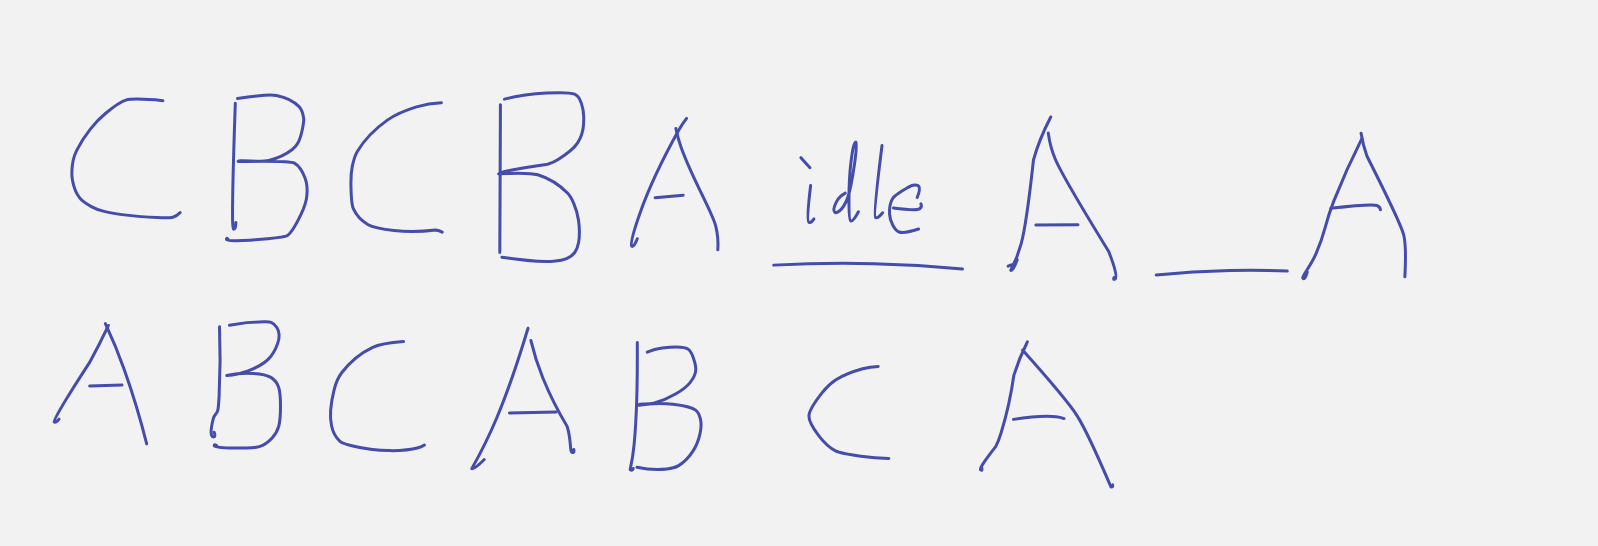 C B C B A idle A _ A
A B C A B C A